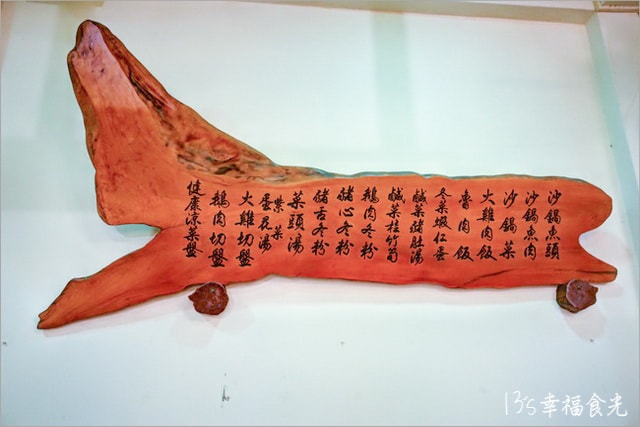 沙鍋魚頭
沙鍋魚肉
沙鍋菜
火雞肉飯
魯肉飯
冬菜蝦仁蛋
鹹菜豬肚湯
鹹菜桂竹筍
鵝肉冬粉
豬心冬粉
豬舌冬粉
菜頭湯
紫菜蛋花湯
火雞切盤
鵝肉切盤
健康涼菜盤
13's幸福食光